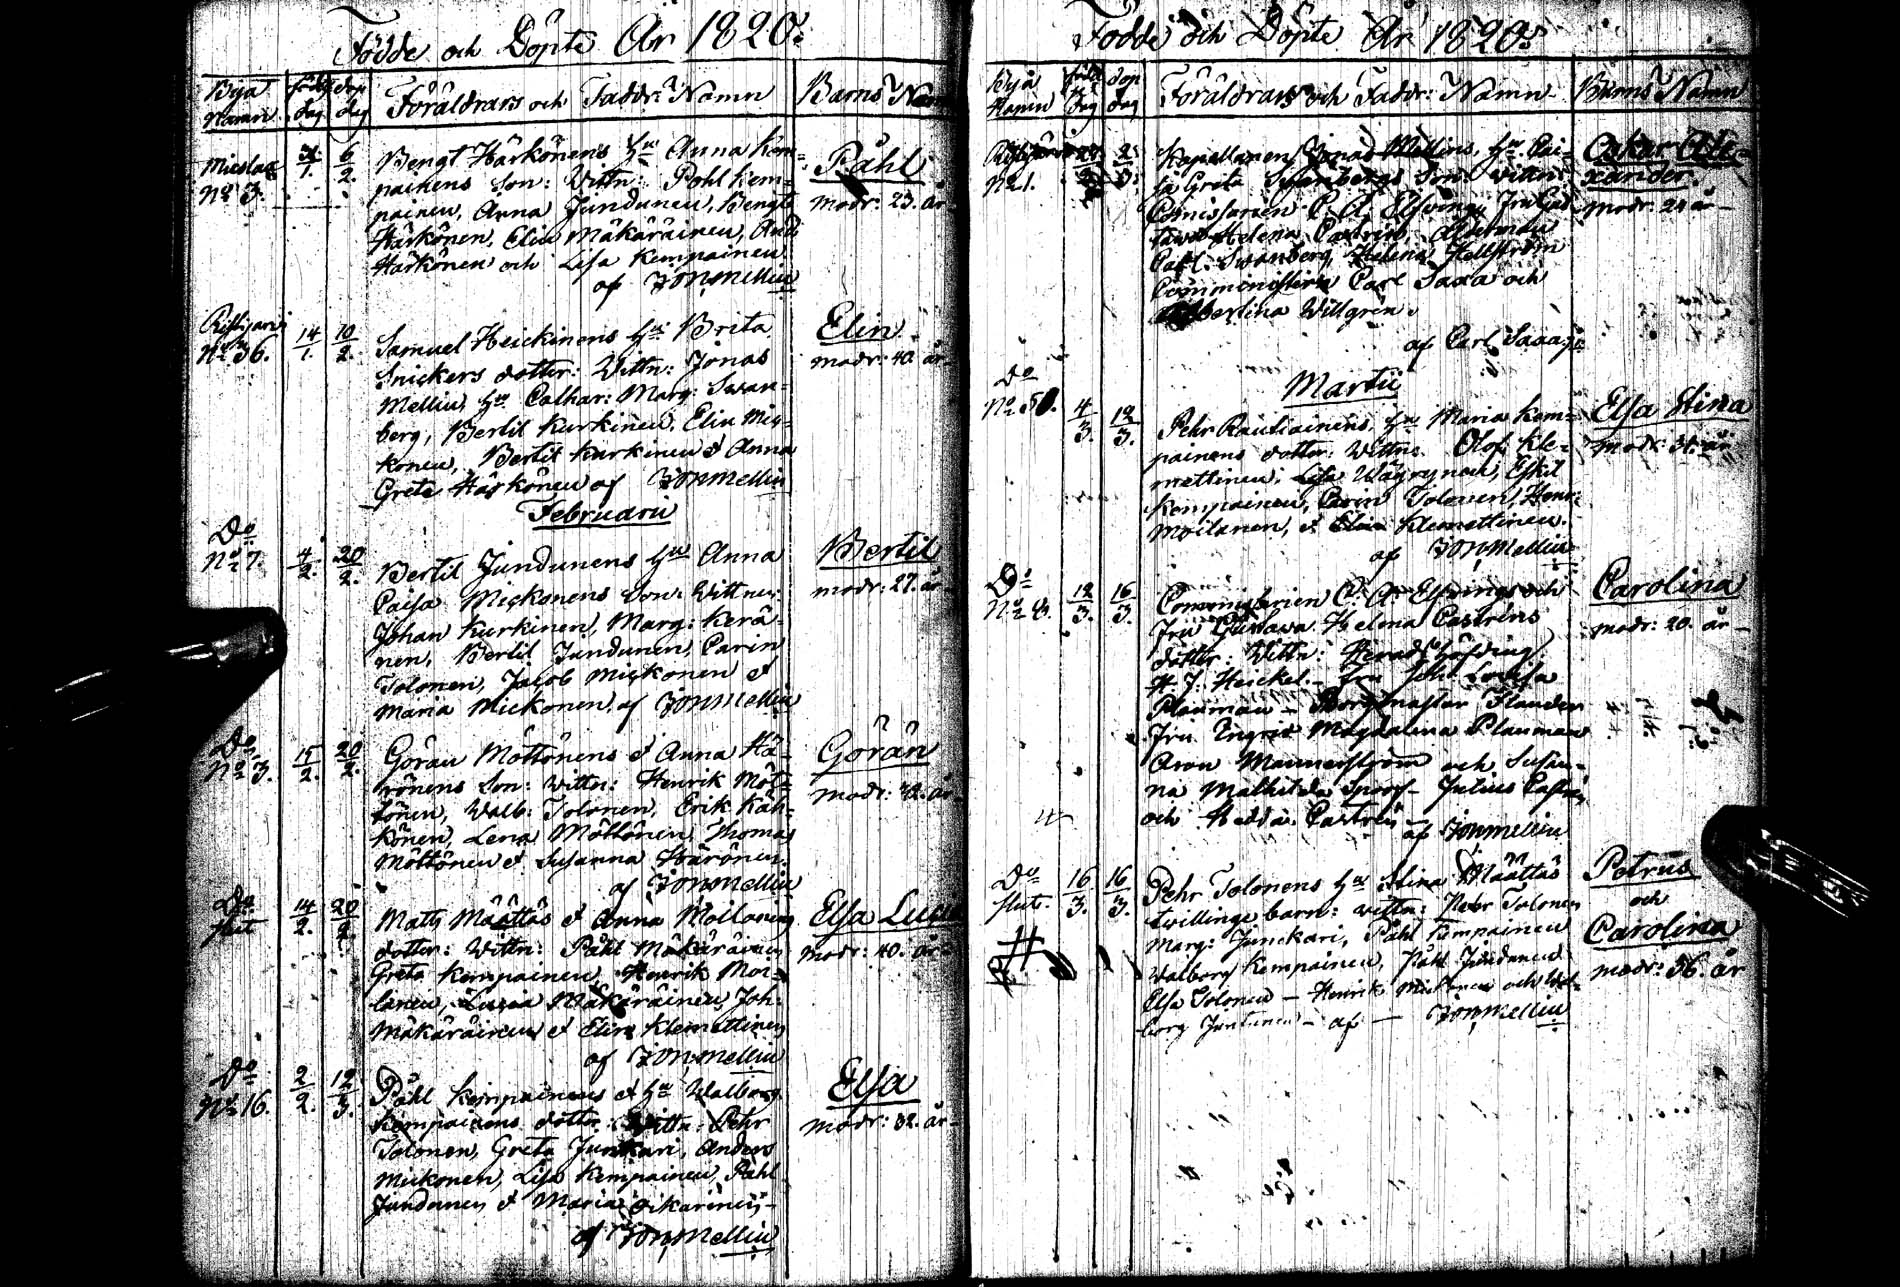 Födde och Döpte År 1820.
Byä Namn
född dag
döp dag
Föräldrars och Faddr: Namn
Barns Namn
N:o 3.
31/1.
6/2.
Bengt Härkönens h:u Anna Kem-
painens Son: Wittn: Pohl Kem-
painen, Anna Jundunen, Bengt
Härkönen, Elin Mäkäräinen, And:
Härkönen och Lisa Kempainen
af Jon Mellin
Påhl
modr: 23. år
Ristijärvi
N:o 36.
14/1.
10/2.
Samuel Heickinens h:u Brita
Snickers dotter: Wittn: Jonas
Mellin, h:u Cathar: Marg: Swan-
berg, Bertil Kurkinen, Elin Mic-
konen, Bertil Kurkinen & Anna
Greta Härkönen af Jon Mellin
Elin
modr: 40. år
Februarii
D:o
N:o 7.
4/2.
20/2.
Bertil Jundunens h:u Anna
Caisa Mickonens Son: Wittn:
Johan Kurkinen, Marg: Kerä-
nen, Bertil Jundunen, Carin
Tolonen, Jacob Mickonen &
Maria Mickonen, af Jon Mellin
Bertil
modr: 27. år
D:o
N:o 3.
15/2.
20/2.
Göran Möttönens & Anna Hä-
rönens Son: Wittn: Henrik Möt-
tönen, Walb: Tolonen, Erik Käh-
könen, Lena Möttönen, Thomas
Möttönen & Susanna Härönen.
af Jon Mellin
Görän
modr: 32. år
D:o
14/2.
20/2.
Matts Määttäs & Anna Moilanens
dotter: Wittn: Påhl Mäkäräinen
Greta Kempainen, Henrik Moi-
lanen, Lucia Mäkäräinen, Joh:
Mäkäräinen & Elin Klemettinen
af Jon Mellin
Elsa Lucia
modr: 40. år
D:o
N:o 16.
2/2.
12/3.
Påhl Kempainens & h:u Walborg
Kempainens dotter: Wittn: Pehr
Tolonen, Greta Junkari, Anders
Mickonen, Lisa Kempainen, Påhl
Jundunen & Maria
af Jon Mellin
Elsa
modr: 32. år
Födde och Döpte År 1820.
Byä Namn
född dag
döp dag
Föräldrars och Faddr: Namn
Barns Namn
N:o 1.
Kapellanen Jonas Mellins, h:u Cai-
sa Greta Swanbergs Son: Wittn:
Comissarien C. A. Elfving, Fru Gus-
tava Helena Castrén,
Carl Swanberg, Helena Hellström
Comministern Carl Saxa och
Albertina Willgren.
af Carl Saxa
Oskar Ale-
xander
modr: 24 år
Martii
D:o
N:o 50.
4/3.
12/3.
Pehr Rautiainens h:u Maria Kem-
painens dotter: Wittn: Olof Kle-
mettinen, Lisa Wäyrynen, Eskil
Kempainen, Carin Tolonen, Henr:
Moilanen, & Elin Klemettinen.
af Jon Mellin
Elsa Stina
modr: 31. år
D:o
N:o 8.
12/3.
16/3.
Commissarien C. A. Elfvings och
Fru Gustava Helena Castréns
dotter: Wittn: Häradshöfding
H. J. Heickel. Fru Joh: Lovisa
Planman — Borgmästar Flander
Fru Ingrid Magdalena Planman
Aron Mannerström och Susan-
na Mathilda Spoof — Julius Castrén
och Hedda Castrén
af Jon Mellin
Carolina
modr: 20. år
D:o
16/3.
16/3.
Pehr Tolonens h:u Stina Määttäs
twillinge barn: wittn: Pehr Tolonen
Marg: Junckari, Påhl Kempainen
Walborg Kempainen, Påhl Jundunen
Elsa Tolonen — Henrik Mickonen och Wal-
borg Juntunen — af — Jon Mellin
Petrus
och
Carolina
modr: 36. år